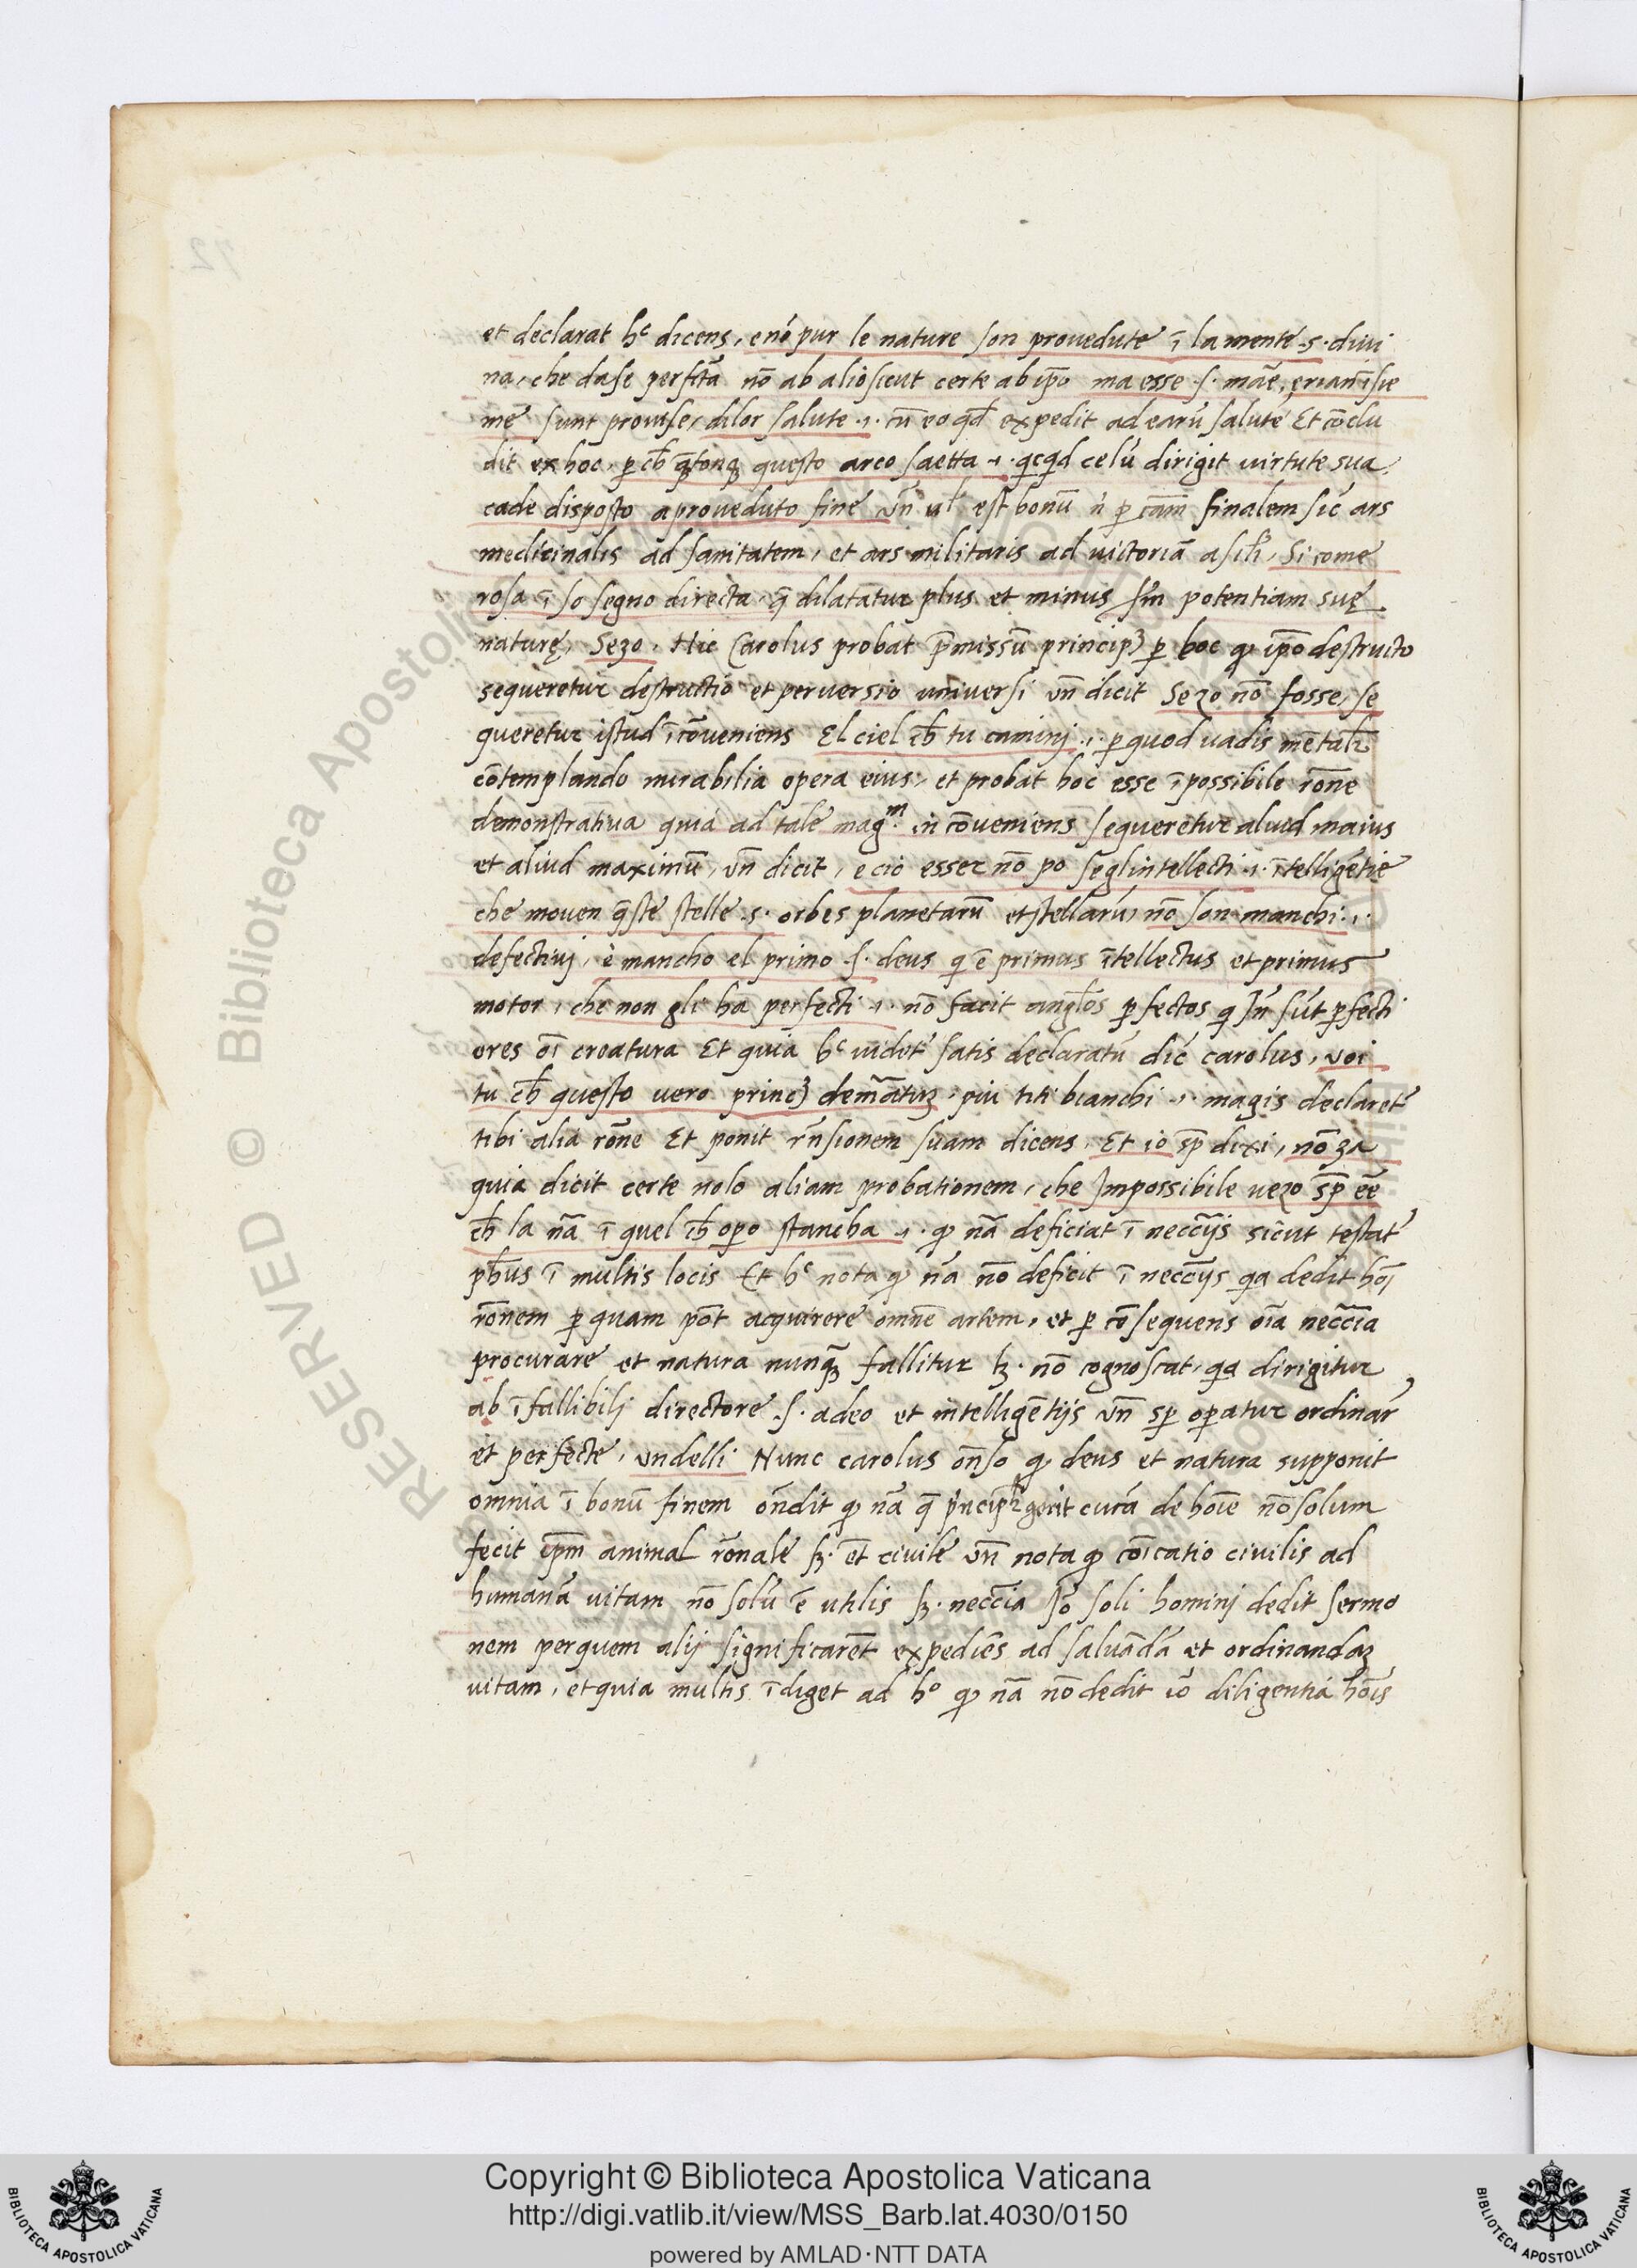 et declarat hc dicens, e nō pur le nature son provedute ī la mente .s. divi
na, che da se perfcta nō ab alio sicut certe ab ipō ma esse .s. māe,
me sunt provise, dilor salute .i. cū eo qd expedit ad earū salute Et cōclu
dit ex hoc, questo arco saetta .i. qcqd celū dirigit virtute sua
cade disposto a proveduto fine vn̄ ul est bonū finalem sic ars
medicinalis ad sanitatem, et ars militaris ad victoriā Si come
rosa ī so segno directa, q̄ dilatatur plus et minus potentiam suę
naturę, Sezo. Hic Carolus probat p̄missū hoc qꝫ ipō destructo
sequeretur destructio et perversio universi vn̄ dicit Sezo nō fosse, se
queretur istud īcōveniens El ciel ch̄ tu camini .i. p quod vadis
cōtemplando mirabilia opera eius, et probat hoc esse īpossibile rōne
demonstrativa quia ad tale mag.m incōveniens sequeretur aliud maius
et aliud maximū, vn̄ dicit, e cio esser nō po se gl intellecti .i. ītelligētie
che moven q̄ste stelle .s. orbes planetarū et stellarū, nō son manchi .i.
defectivj, è mancho el primo .s. deus q ē primus ītellectus et primus
motor, che non gli ha perfecti .i. nō facit anglos pfectos q sūt pfecti
ores creatura Et quia hc videt' satis declaratū dic' carolus, voi
tu ch̄ questo vero piu ti ti bianchi .i. magis declaret'
tibi alia rōne Et ponit rn̄sionem suam dicens, Et io dixi, nō za
quia dicit certe nolo aliam probationem, che Impossibile vezo sp̄ eē
ch̄ la nā ī quel ch̄ opo stancha .i. qꝫ nā deficiat ī neccījs sicut testat'
ph̄us ī multis locis Et hc nota qꝫ nā nō deficit ī neccījs qa dedit hōi
rōnem p quam pōt acquirere omnē artem, et p cōsequens oīa neccīa
procurare et natura nunqꝫ fallitur lꝫ. nō cognoscat, qa dirigitur
ab īfallibilj directore .s. a deo et intelligētijs vn̄ sp opatur ordinar'
et perfecte, vndelli Nunc carolus on̄so qꝫ deus et natura supponit
omnia ī bonū finem on̄dit qꝫ nā q̄ gerit curā de hoīe nō solum
fecit ip̄m animal rōnale sꝫ. et civile vn̄ nota qꝫ cōicatio civilis ad
humanā vitam nō solū ē utilis sꝫ. neccīa Iō soli hominj dedit sermo
nem per quem alij significarēt expediēs ad salvādā et ordinandaꝫ
vitam, et quia multis īdiget ad hº qꝫ nā nō dedit iō diligentiā hoīs
Copyright © Biblioteca Apostolica Vaticana
http://digi.vatlib.it/view/MSS_Barb.lat.4030/0150
powered by AMLAD·NTT DATA
BIBLIOTECA APOSTOLICA VATICANA
BIBLIOTECA APOSTOLICA VATICANA